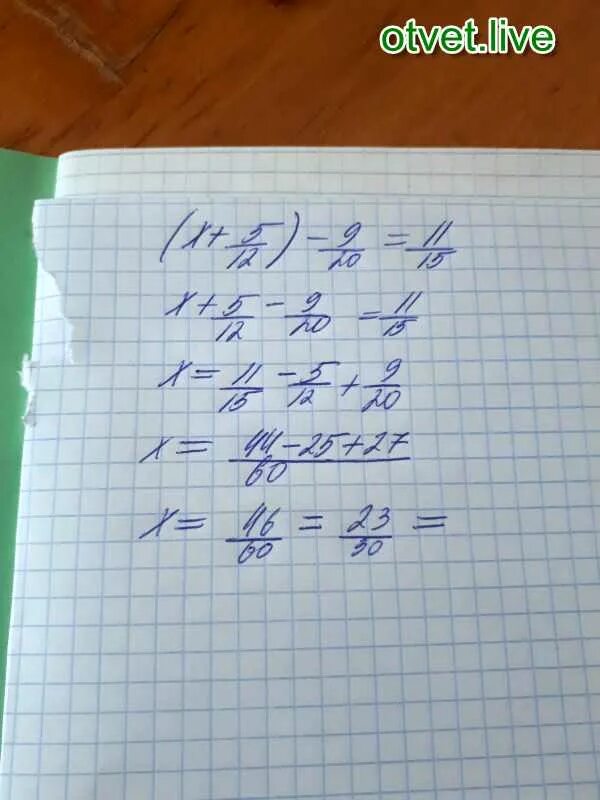 otvet.live
(x + 5/12) - 9/20 = 11/15
x + 5/12 - 9/20 = 11/15
x = 11/15 - 5/12 + 9/20
x = 44-25+27/60
x = 46/60 = 23/30 =